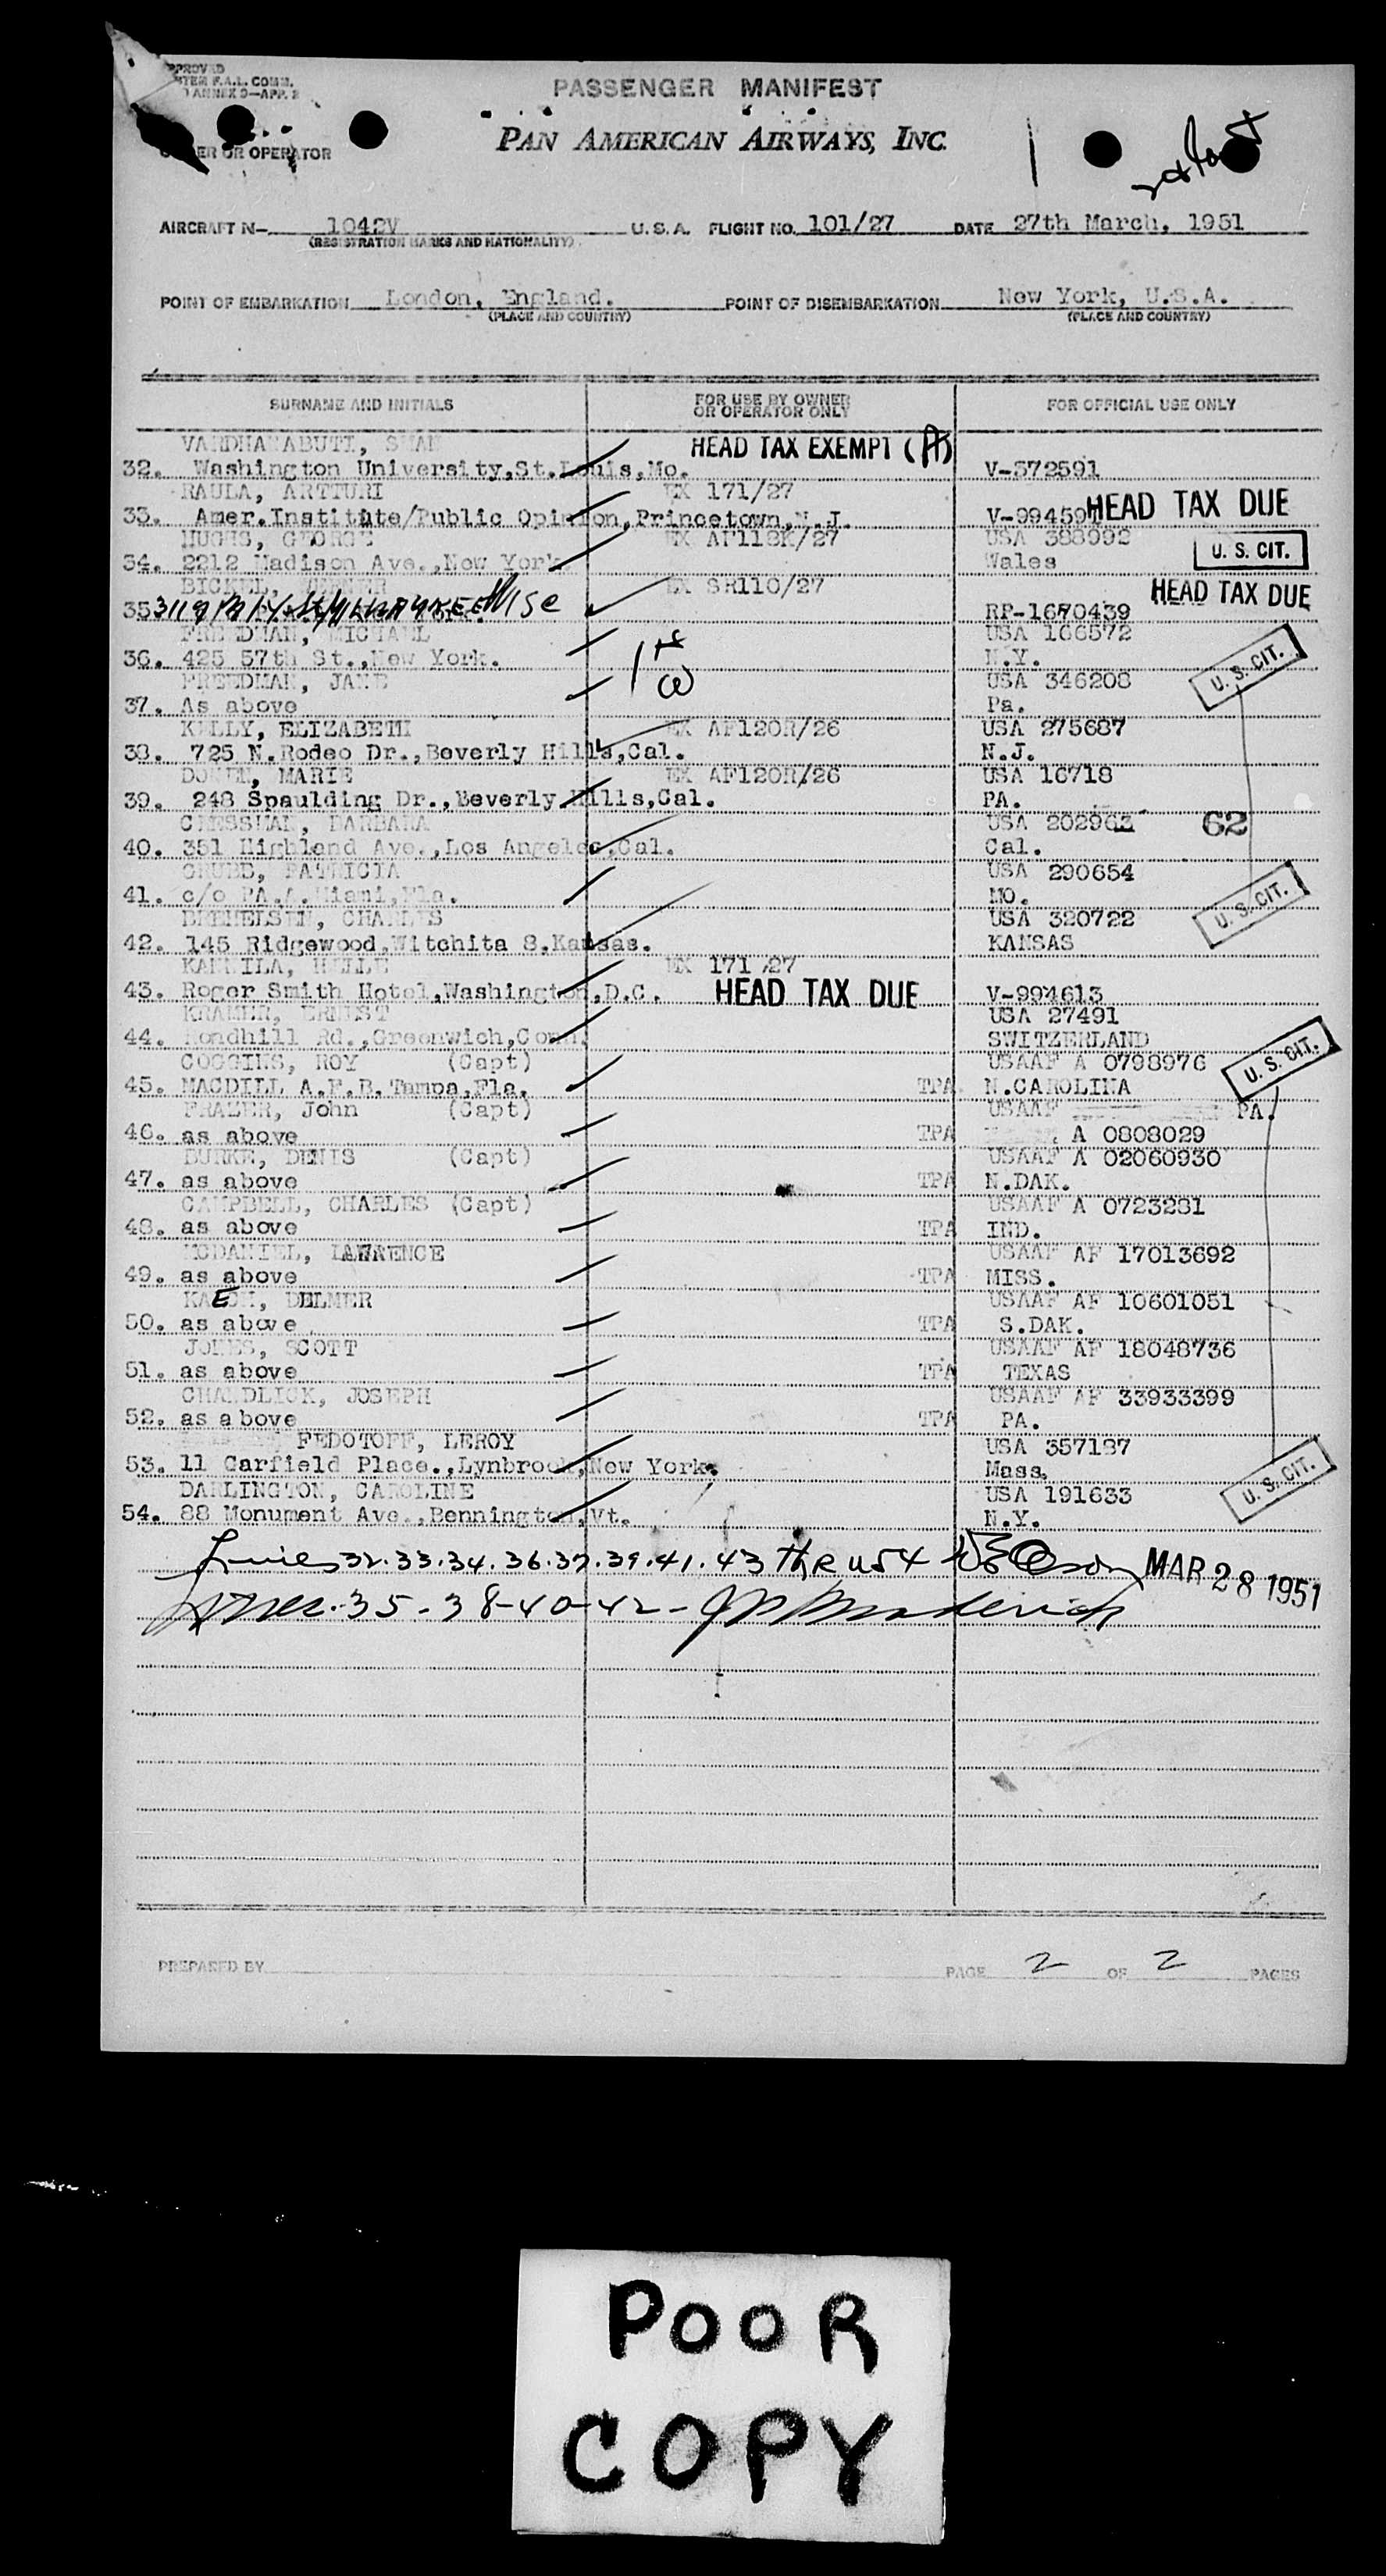 PASSENGER MANIFEST
PAN AMERICAN AIRWAYS, INC.
OR OPERATOR
AIRCRAFT N- 1042V U.S.A. FLIGHT NO. 101/27 DATE 27th March, 1951
(REGISTRATION MARKS AND NATIONALITY)
POINT OF EMBARKATION London, England. POINT OF DISEMBARKATION New York, U.S.A.
(PLACE AND COUNTRY) (PLACE AND COUNTRY)
SURNAME AND INITIALS FOR USE BY OWNER OR OPERATOR ONLY FOR OFFICIAL USE ONLY
HEAD TAX EXEMPT (A)
32. Washington University,St.Louis,Mo. V-372591
RAULA, ARTTURI EX 171/27
33. Amer.Institute/Public Opinion,Princetown,N.J. HEAD TAX DUE
GEORGE EX AF118K/27 USA 388992
34. 2212 Madison Ave.,New York Wales U. S. CIT.
EX SR110/27 HEAD TAX DUE
35. RP-1670439
FREEDMAN, MICHAEL USA 166572
36. 425 57th St.,New York. N.Y. U. S. CIT.
FREEDMAN, JANE USA 346208
37. As above Pa.
KELLY, ELIZABETH EX AF120R/26 USA 275687
38. 725 N.Rodeo Dr.,Beverly Hills,Cal. N.J.
MARIE EX AF120R/26 USA 16718
39. 248 Spaulding Dr.,Beverly Hills,Cal. PA.
BARBARA USA 202963 62
40. 351 Highland Ave.,Los Angeles,Cal. Cal.
PATRICIA USA 290654
41. c/o PA.A.Miami,Fla. MO. U. S. CIT.
CHARLES USA 320722
42. 145 Ridgewood,Witchita 8.Kansas. KANSAS
EX 171/27
43. Roger Smith Hotel,Washington,D.C. HEAD TAX DUE V-994613
KRAMER, ERNEST USA 27491
44. Rd.,Greenwich,Conn. SWITZERLAND
COGGINS, ROY (Capt) USAAF A 0798976 U. S. CIT.
45. MACDILL A.F.B.Tampa,Fla. TPA N.CAROLINA
FRAZER, John (Capt) USAAF PA.
46. as above TPA A 0808029
BURKE, DENIS (Capt) USAAF A 02060930
47. as above TPA N.DAK.
CAMPBELL, CHARLES (Capt) USAAF A 0723281
48. as above TPA IND.
MCDANIEL, LAWRENCE USAAF AF 17013692
49. as above TPA MISS.
DELMER USAAF AF 10601051
50. as above TPA S.DAK.
JONES, SCOTT USAAF AF 18048736
51. as above TPA TEXAS
CHANDLICK, JOSEPH USAAF AF 33933399
52. as above TPA PA.
FEDOTOFF, LEROY USA 357187
53. 11 Garfield Place.,Lynbrook,New York. Mass. U. S. CIT.
DARLINGTON, CAROLINE USA 191633
54. 88 Monument Ave.,Bennington,Vt. N.Y.
Lines 32.33.34.36.37.39.41.43 thru 54 MAR 28 1951
Lines.35-38-40-42-
PREPARED BY PAGE 2 OF 2 PAGES
POOR
COPY